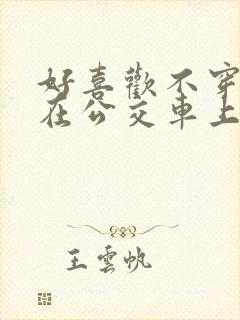 好喜歡不穿
在公交車上
王雲帆